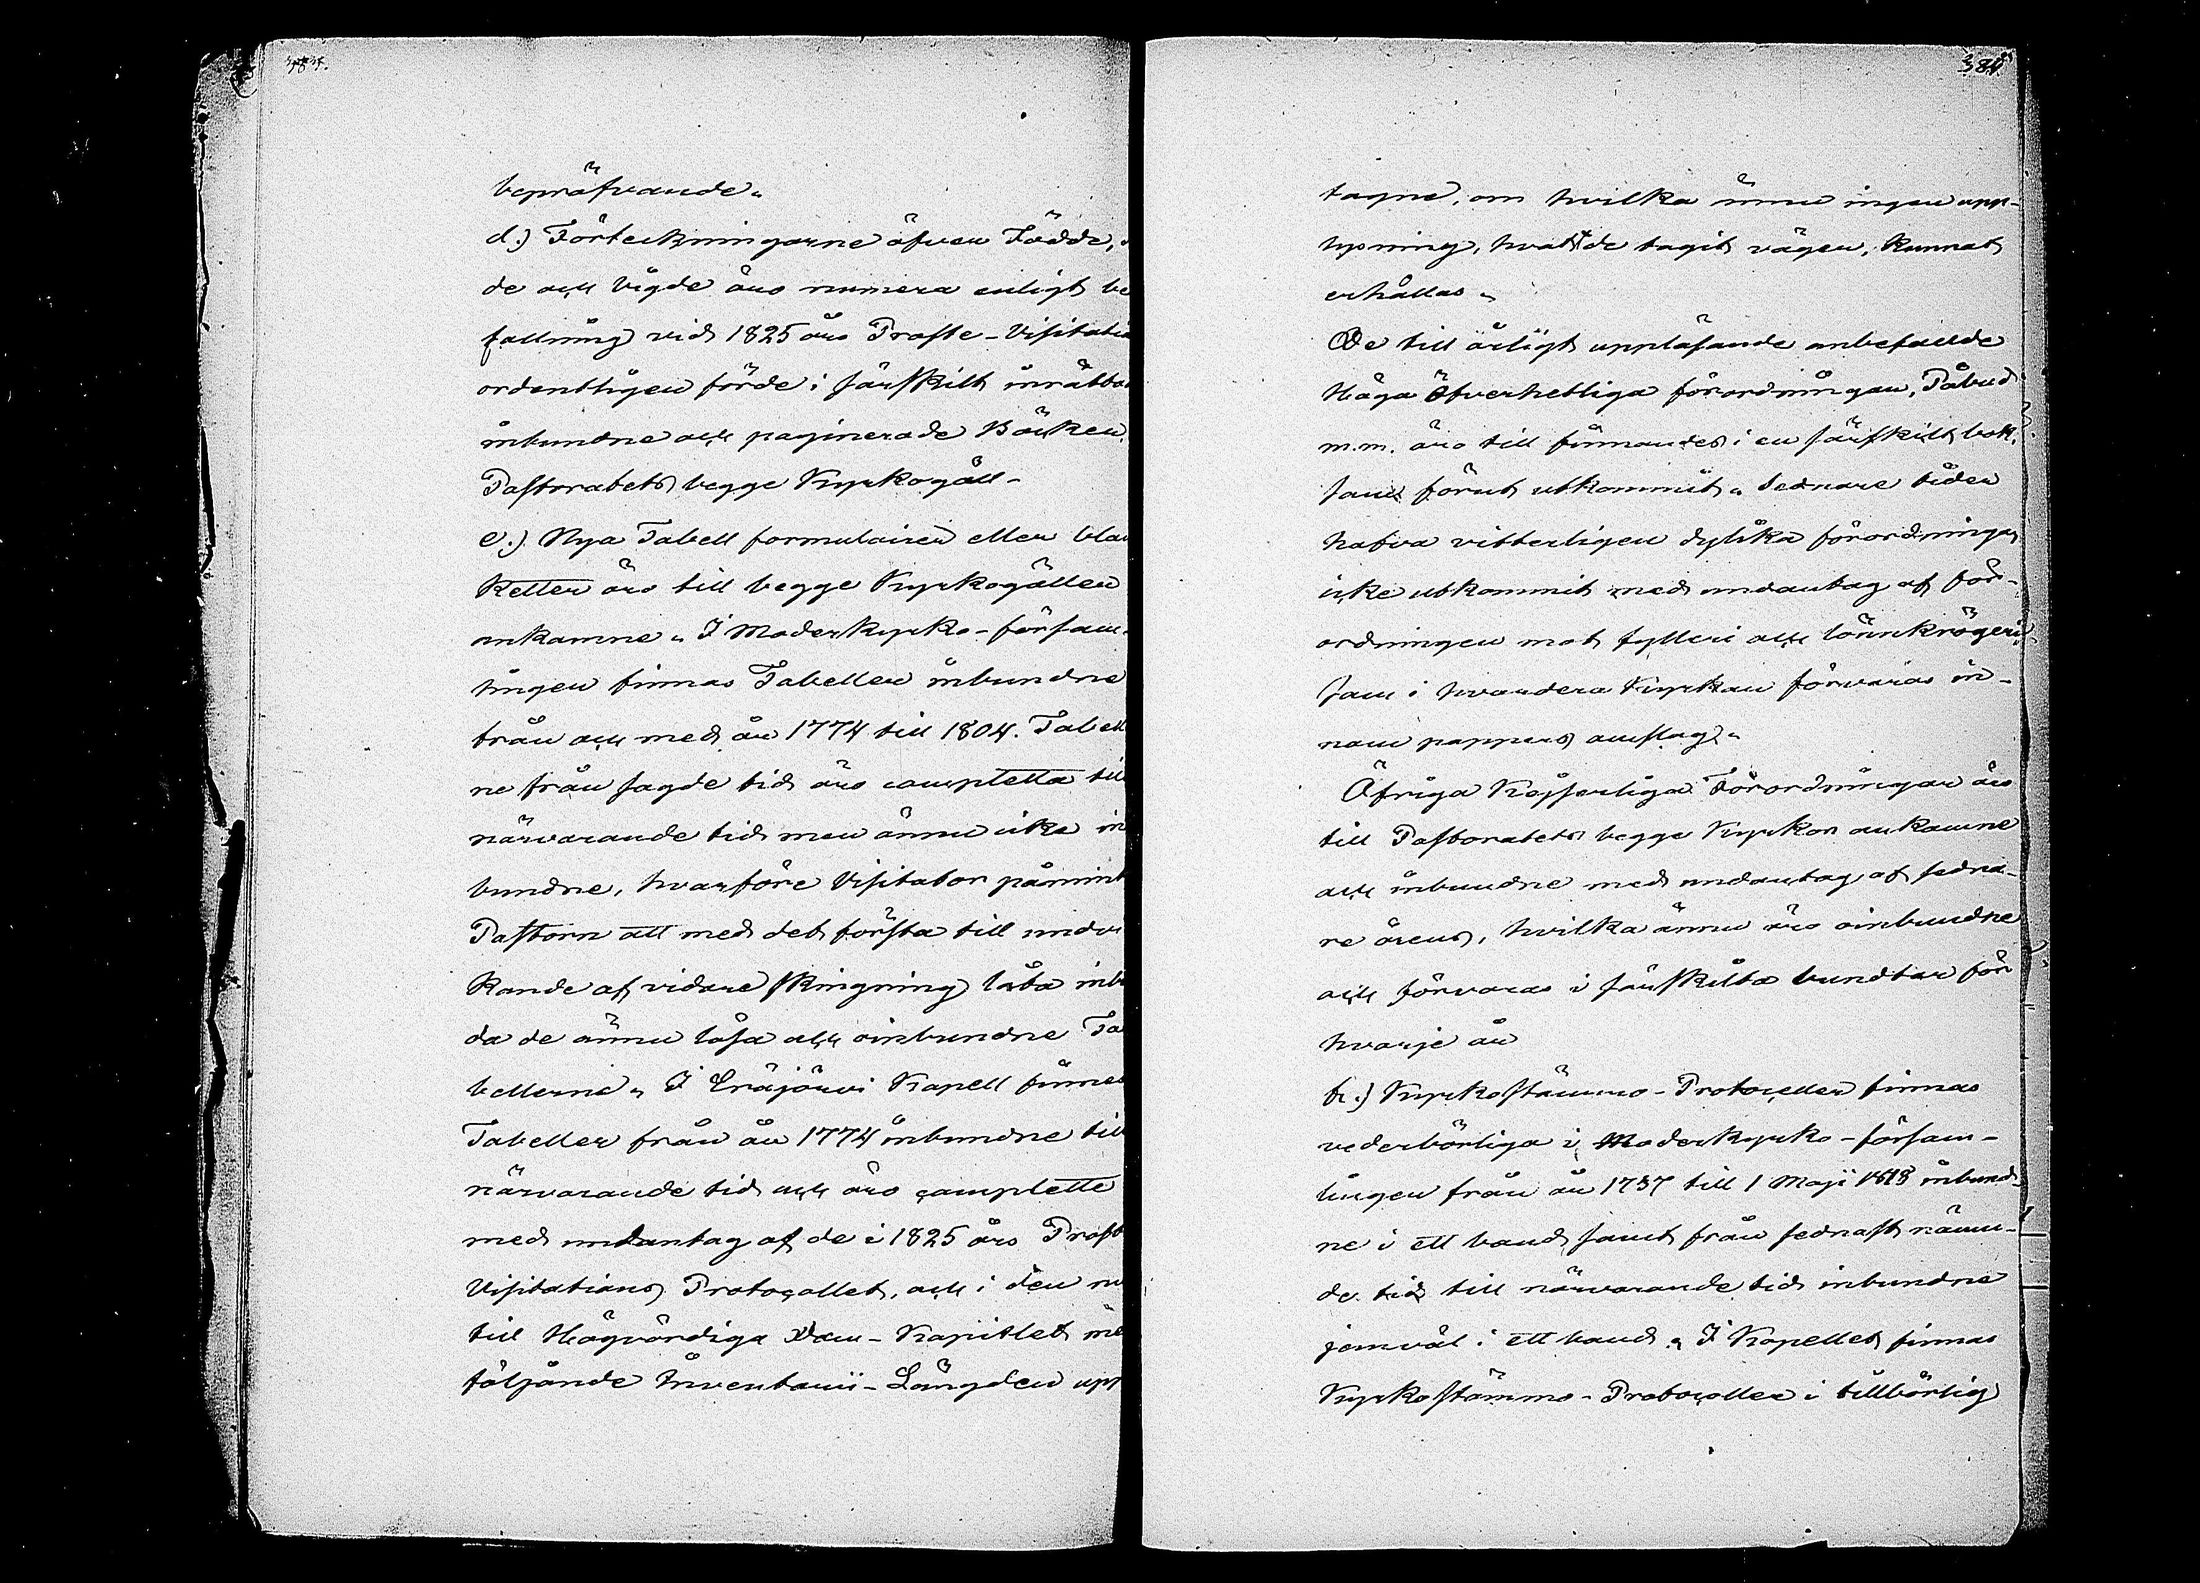 bepröfvande.
d.) Förteckningarne öfver Födde,
de och Vigde äro numera enligt be
fallning vid 1825 års Proste-Visitatio
ordentligen förde i särskilt inrättad
inbundne och paginerade Böcker,
Pastoratets begge Kyrkogäll-
e.) Nya Tabell formulairer eller blan
ketter äro till begge Kyrkogällen
ankomne. I Moderkyrko-försam-
lingen finnas Tabeller inbundne
från och med år 1774 till 1804. Tabell
ne från sagde tid äro complette till
närvarande tid men ännu icke in
bundne, hvarföre Visitator påmint
Pastorn att med det första till undvi
kande af vidare skingring låta inb
da de ännu lösa och oinbundne Ta
bellerne. I Eräjärvi Kapell finnes
Tabeller från år 1774 inbundne till
närvarande tid och äro complette
med undantag af de i 1825 års Prost
Visitations Protocollet, och i den nu
till Högvördiga Dom-Kapitlet me
följande Inventarii-Längden upp
384
tagne, om hvilka ännu ingen upp-
lysning, hvart de tagit vägen, kunnat
erhållas.
De till årligt uppläsande anbefallde
Höga Öfverhetliga förordningar, Påbud
m.m. äro till finnandes i en särskilt bok,
som förut utkommit. Sednare tider
hafva vitterligen dylika förordningar
icke utkommit med undantag af för-
ordningen mot fylleri och lönnkrögeri,
som i hvardera Kyrkan förvaras in-
nom pappers omslag.
Öfriga Kejserliga Förordningar äro
till Pastoratets begge Kyrkor ankomne
och inbundne med undantag af sedna-
re årens, hvilka ännu äro oinbundne
och förvaras i särskilta bundtar för
hvarje år
f.) Kyrkostämmo-Protocoller finnas
vederbörliga i Moderkyrko-försam-
lingen från år 1737 till 1 Maji 1813 inbund-
ne i ett band samt från sednast nämn-
de tid till närvarande tid inbundne
jemväl i ett band. I Kapellet finnas
Kyrkostämmo-Protocoller i tillbörlig